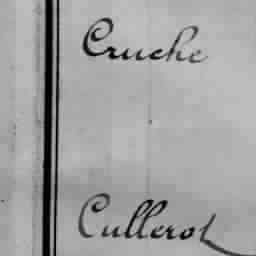 Cruche
Cullerot